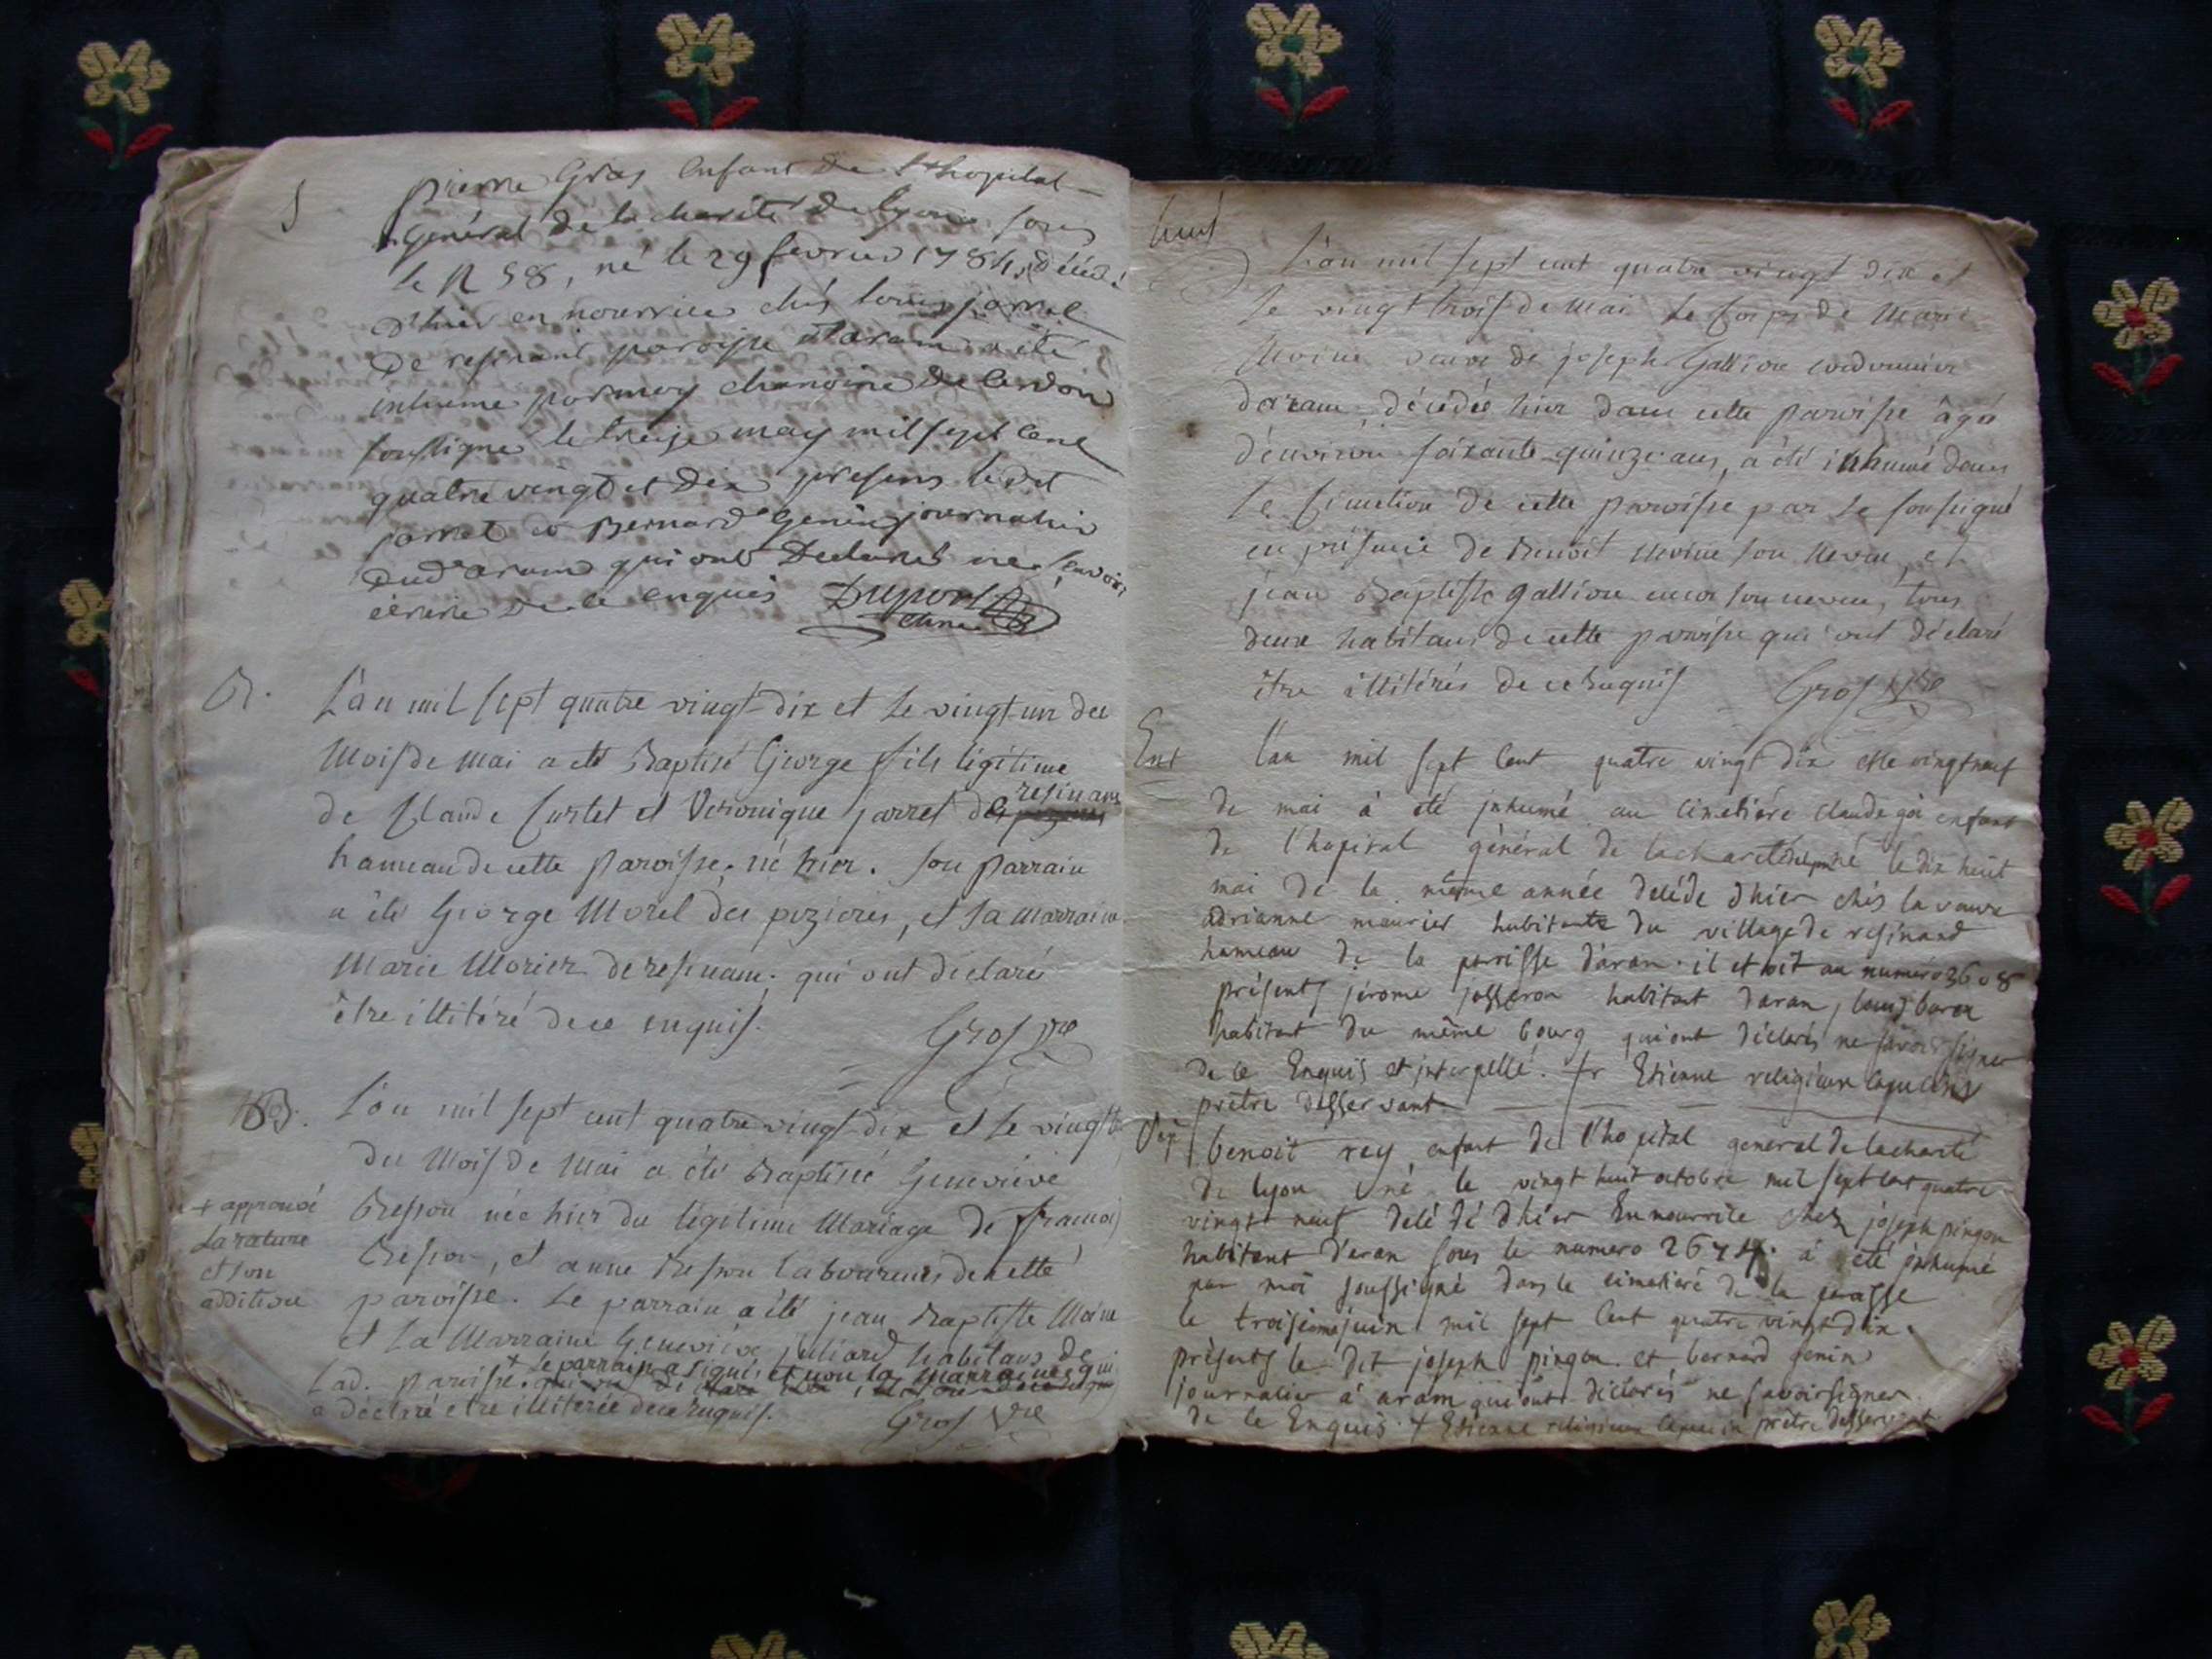 S
pierre Gros enfant de l'hopital
General de la charité de lyon sous
le N 58, né le 29 fevrier 1784, décédé
d'hier en nourrice chés louis jarret
de resinant paroisse d'aram a été
inhumé par moy chanoine de Cerdon
soussigné le treize may mil sept cent
quatre vingt et dix presens ledit
jarret et Bernard Genin journalier
dud aram qui ont Declaré ne scavoir
écrire de ce enquis Duport
chne
B.
L'an mil sept quatre vingt dix et le vingt un du
Mois de Mai a été Baptisé George fils légitime
resinans
de Claude Curtet et Veronique jarret de
hameau de cette Paroisse, né hier. Son Parrain
a été George Morel des pezieres, et Sa Marraine
Marie Morier de resinam. qui ont déclaré
être illitéré de ce enquis.
Gros Vre
B.
L'an mil sept cent quatre vingt dix et le vingt
du Mois de Mai a été Baptisée Geneviéve
Bresson née hier du légitime Mariage de françois
Bresson, et anne Bresson laboureurs de cette
paroisse. Le parrain a été jean Baptiste Moine
et La Marraine Genevieve juliard habitans de
Lad. paroisse. + Le parrain a signé, et non la marraine qui
a déclaré etre illiterée de ce enquis.
Gros Vre
+ approuvé
La rature
et son
addition
L'an mil sept cent quatre vingt dix et
le vingt trois de Mai le Corps de Marie
Moine veuve de joseph Gallion cordonnier
daram, décédée hier dans cette paroisse âgé
d'environ soixante quinze ans, a été inhumé dans
le Cimetiere de cette paroisse par le soussigné
en présence de Benoit Moine son neveu, et
jean Baptiste Gallion aussi son neveu, tous
deux habitans de cette paroisse qui ont déclaré
être illitérés de ce Enquis Gros Vre
Ent
l'an mil sept Cent quatre vingt dix et le vingt neuf
de mai à été inhumé au Cimetiére Claude enfant
de l'hopital général de la charité né le dix huit
mai de la même année décédé dhier chés la veuve
adrianne meurier habitante du village de resinand
hameau de la paroisse d'aram. il etoit au numéro 3608
présents jérome josseron habitant daram, louis
habitant du même bourg qui ont déclarés ne savoir signer
de Ce Enquis et interpellé. fr Etienne religieux Capucins
prêtre desservant
benoit rey enfant de l'hopital general de lacharité
de lyon né le vingt huit octobre mil sept cent quatre
vingt neuf décédé dhier En nourrice Chez joseph pingon
habitant d'aran sous le numero 2674. à été inhumé
par moi soussigné dans le cimetiere de la
le troisième juin mil sept Cent quatre vingt dix.
présents le dit joseph pingon et bernard genin
journalier à aram qui ont déclarés ne savoir signer
de Ce Enquis. f Etienne religieux Capucin prêtre desservant